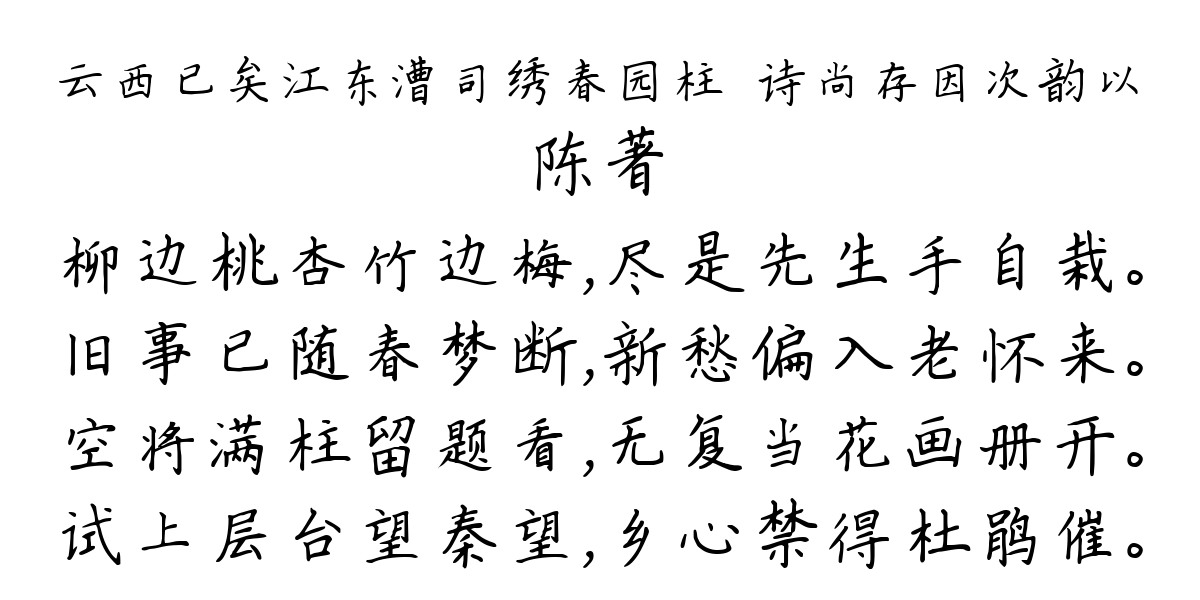 云西已矣江东漕司绣春园柱 诗尚存因次韵以
陈著
柳边桃杏竹边梅,尽是先生手自栽。
旧事已随春梦断,新愁偏入老怀来。
空将满柱留题看,无复当花画册开。
试上层台望秦望,乡心禁得杜鹃催。